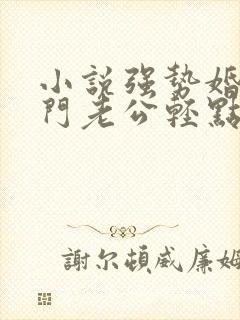 小説强勢婚
門老公輕點
謝尔頓威廉姆